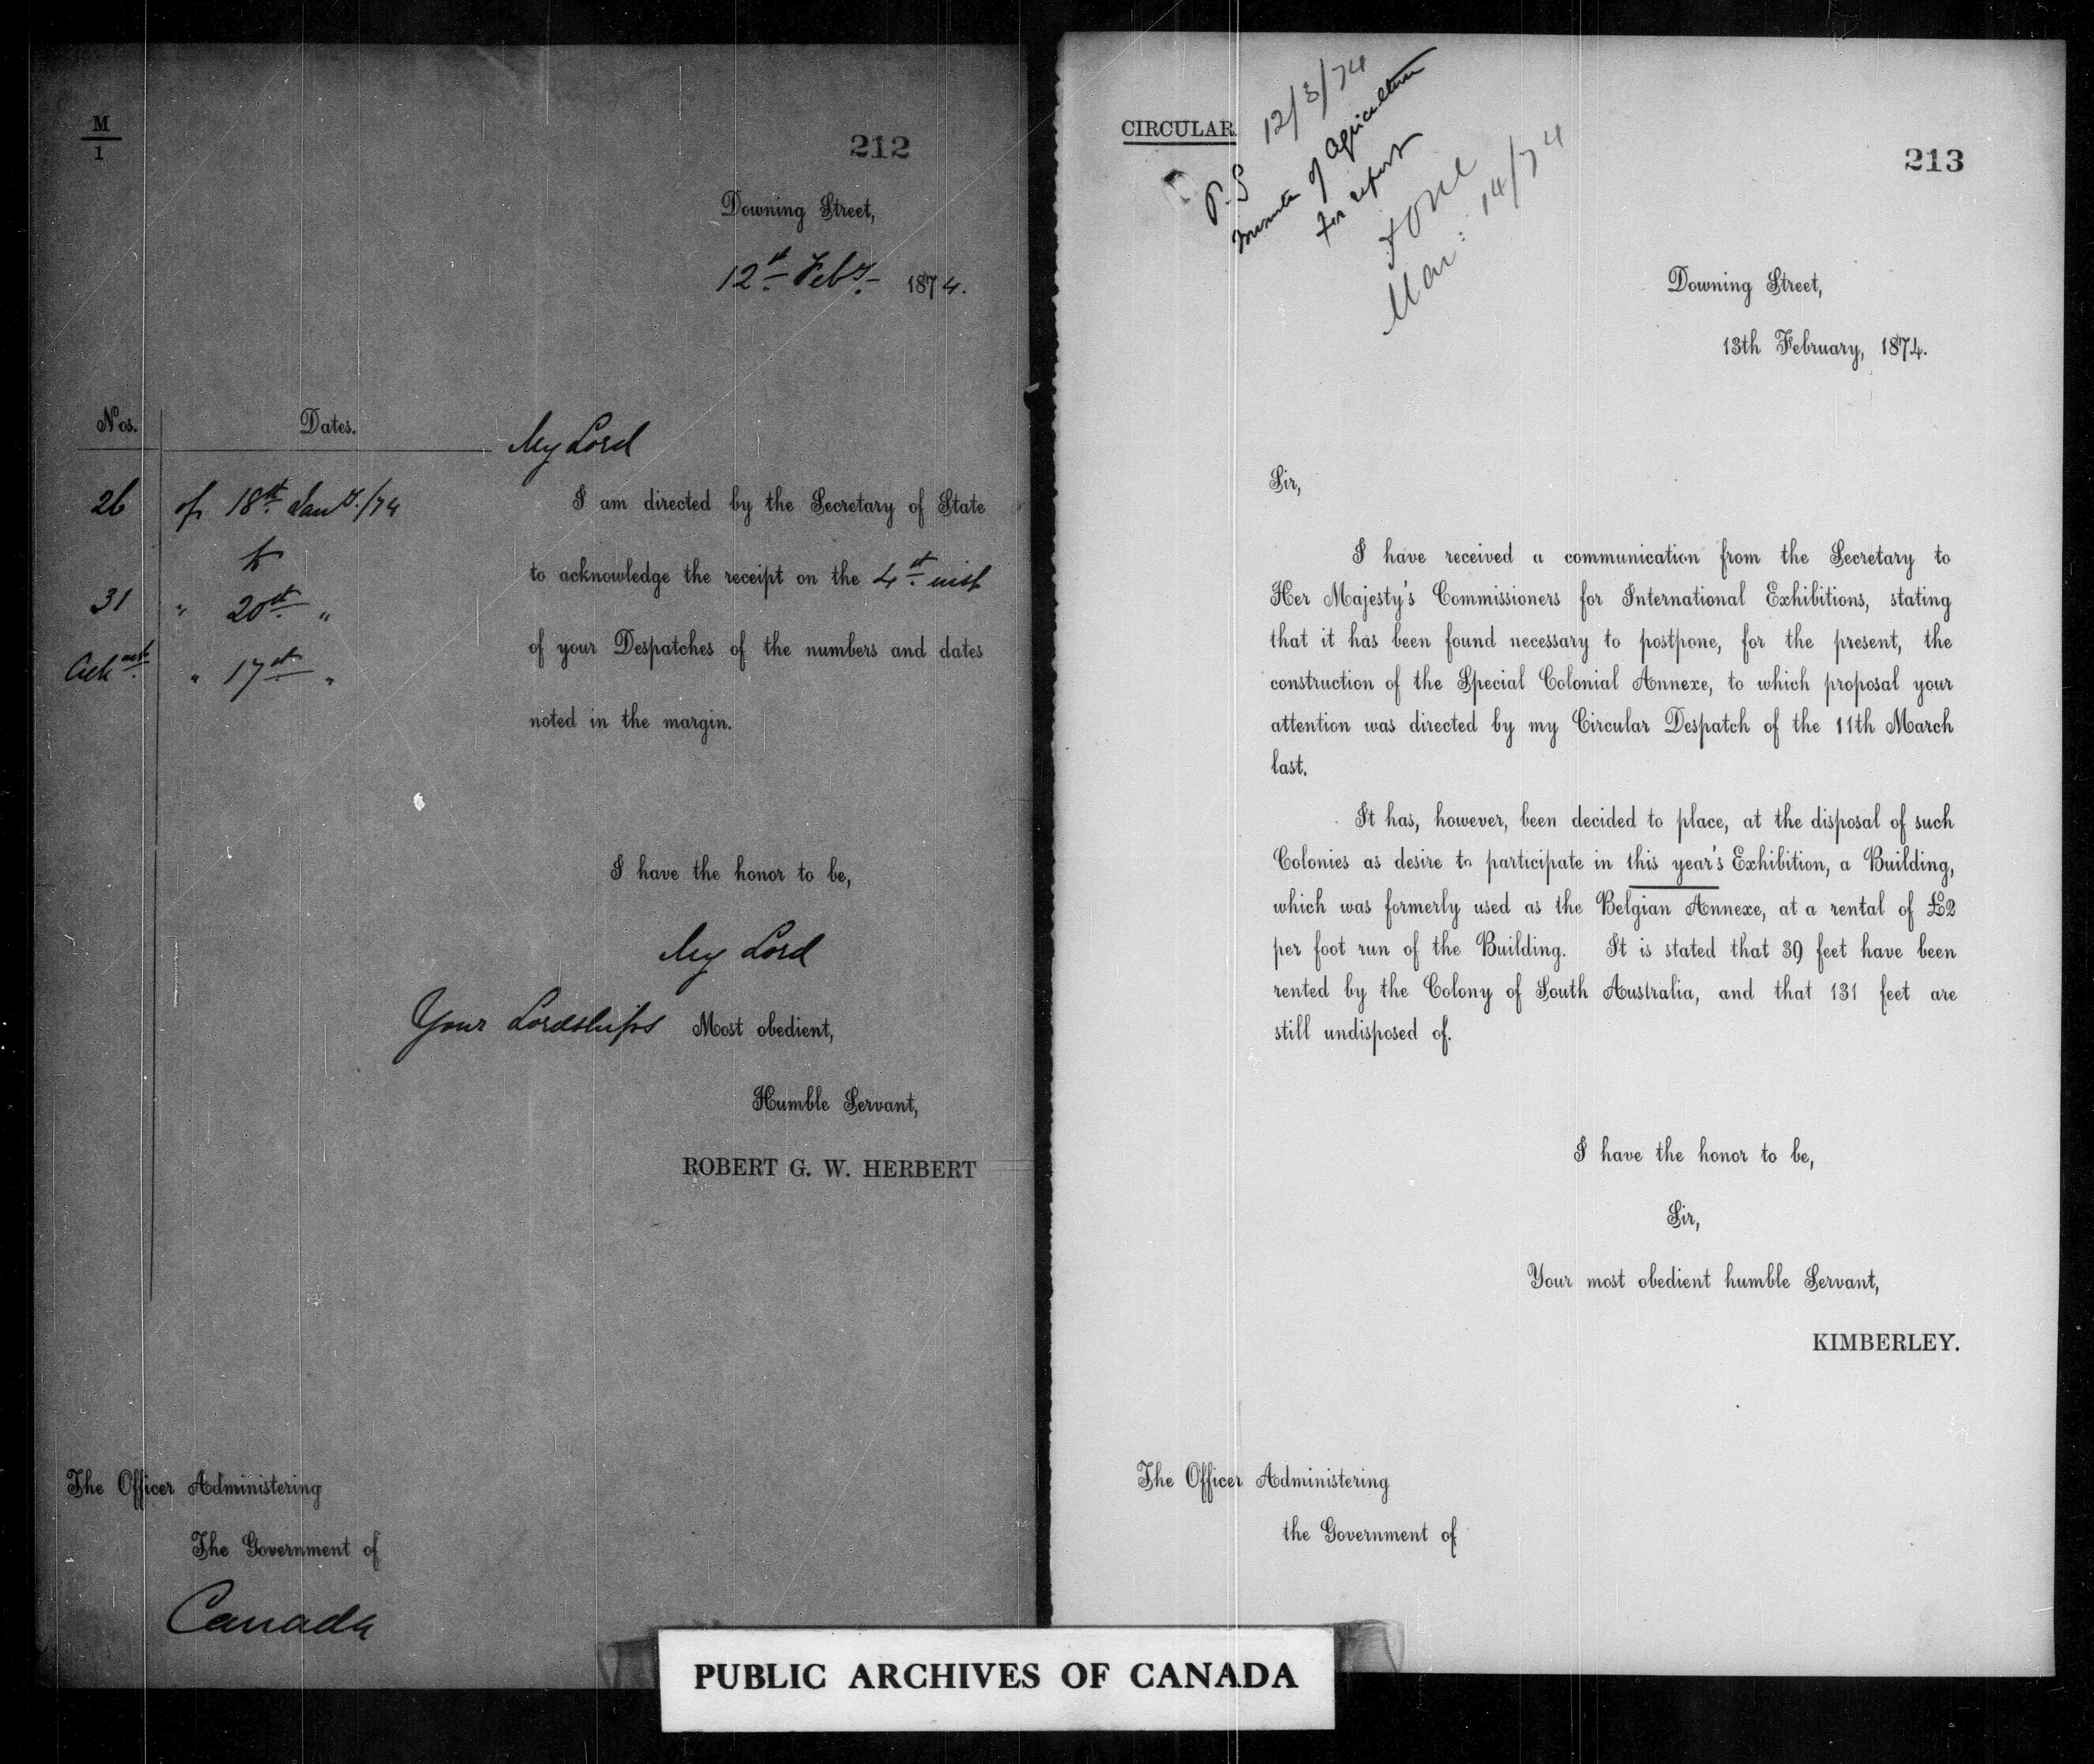 M
1
212
Downing Street,
12th Feby. 1874.
Nos.
Dates.
My Lord
26 of 18th Jany./74
to
31 " 20th "
" 17th "
I am directed by the Secretary of State
to acknowledge the receipt on the 4th inst
of your Despatches of the numbers and dates
noted in the margin.
I have the honor to be,
My Lord
Your Lordships Most obedient,
Humble Servant,
ROBERT G. W. HERBERT
The Officer Administering
The Government of
Canada
CIRCULAR
P.S 12/3/74
Minister of Agriculture
for report
Done
Mar: 14/74
213
Downing Street,
13th February, 1874.
Sir,
I have received a communication from the Secretary to
Her Majesty's Commissioners for International Exhibitions, stating
that it has been found necessary to postpone, for the present, the
construction of the Special Colonial Annexe, to which proposal your
attention was directed by my Circular Despatch of the 11th March
last.
It has, however, been decided to place, at the disposal of such
Colonies as desire to participate in this year's Exhibition, a Building,
which was formerly used as the Belgian Annexe, at a rental of £2
per foot run of the Building. It is stated that 39 feet have been
rented by the Colony of South Australia, and that 131 feet are
still undisposed of.
I have the honor to be,
Sir,
Your most obedient humble Servant,
KIMBERLEY.
The Officer Administering
the Government of
PUBLIC ARCHIVES OF CANADA